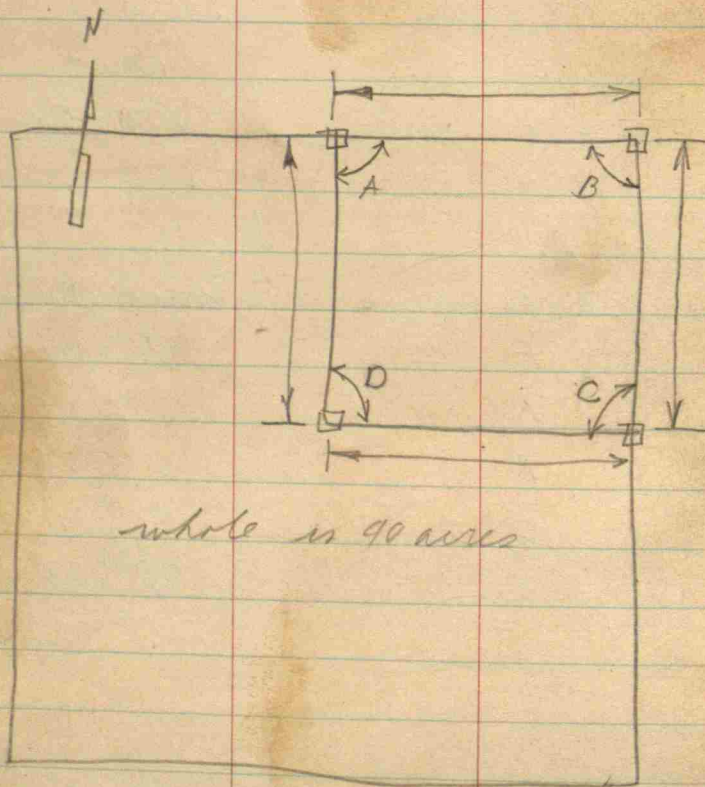 N
A B
D C
whole is 90 acres